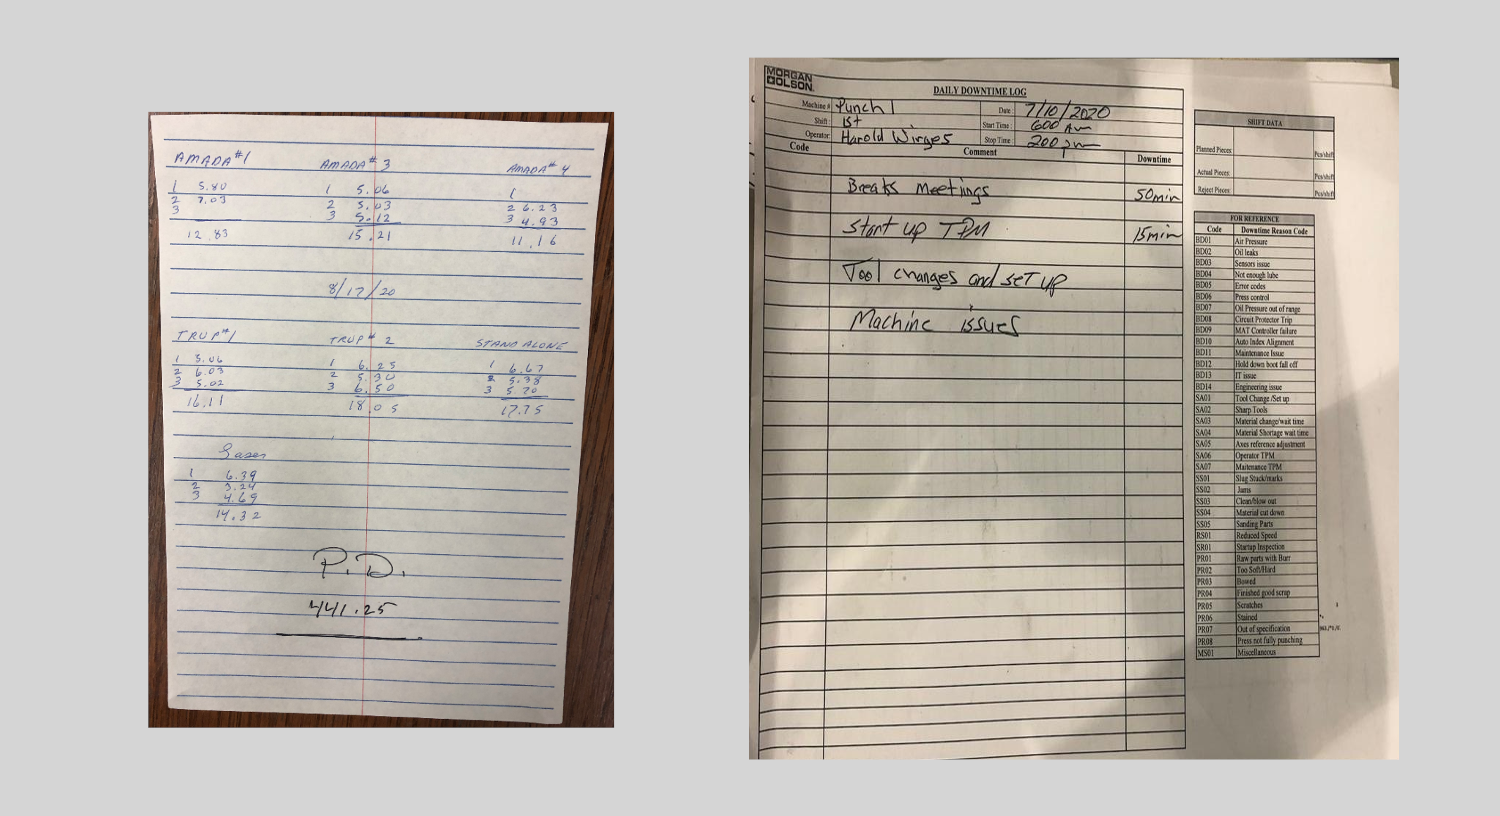 AMADA #1
1 5.80
2 7.03
3
12.83
AMADA #3
1 5.06
2 5.03
3 5.12
15.21
AMADA #4
1
2 6.23
3 4.93
11.16
8/17/20
TRUP #1
1 5.06
2 6.03
3 5.02
16.11
TRUP #2
1 6.25
2 5.30
3 6.50
18.05
STAND ALONE
1 6.67
2 5.38
3 5.70
17.75
Laser
1 6.39
2 3.24
3 4.69
14.32
P.D.
441.25
MORGAN OLSON
DAILY DOWNTIME LOG
Machine # Punch 1 Date: 7/10/2020
Shift: 1st Start Time: 600 Am
Operator: Harold Wirges Stop Time: 200 pm
Code Comment Downtime
Breaks Meetings 50min
Start up TPM 15min
Tool changes and set up
Machine issues
SHIFT DATA
Planned Pieces: Pcs/shift
Actual Pieces: Pcs/shift
Reject Pieces: Pcs/shift
FOR REFERENCE
Code Downtime Reason Code
BD01 Air Pressure
BD02 Oil leaks
BD03 Sensors issue
BD04 Not enough lube
BD05 Error codes
BD06 Press control
BD07 Oil Pressure out of range
BD08 Circuit Protector Trip
BD09 MAT Controller failure
BD10 Auto Index Alignment
BD11 Maintenance Issue
BD12 Hold down boot fall off
BD13 IT issue
BD14 Engineering issue
SA01 Tool Change /Set up
SA02 Sharp Tools
SA03 Material change/wait time
SA04 Material Shortage wait time
SA05 Axes reference adjustment
SA06 Operator TPM
SA07 Maitenance TPM
SS01 Slug Stuck/marks
SS02 Jams
SS03 Clean/blow out
SS04 Material cut down
SS05 Sanding Parts
RS01 Reduced Speed
SR01 Startup Inspection
PR01 Raw parts with Burr
PR02 Too Soft/Hard
PR03 Bowed
PR04 Finished good scrap
PR05 Scratches
PR06 Stained
PR07 Out of specification
PR08 Press not fully punching
MS01 Miscellaneous